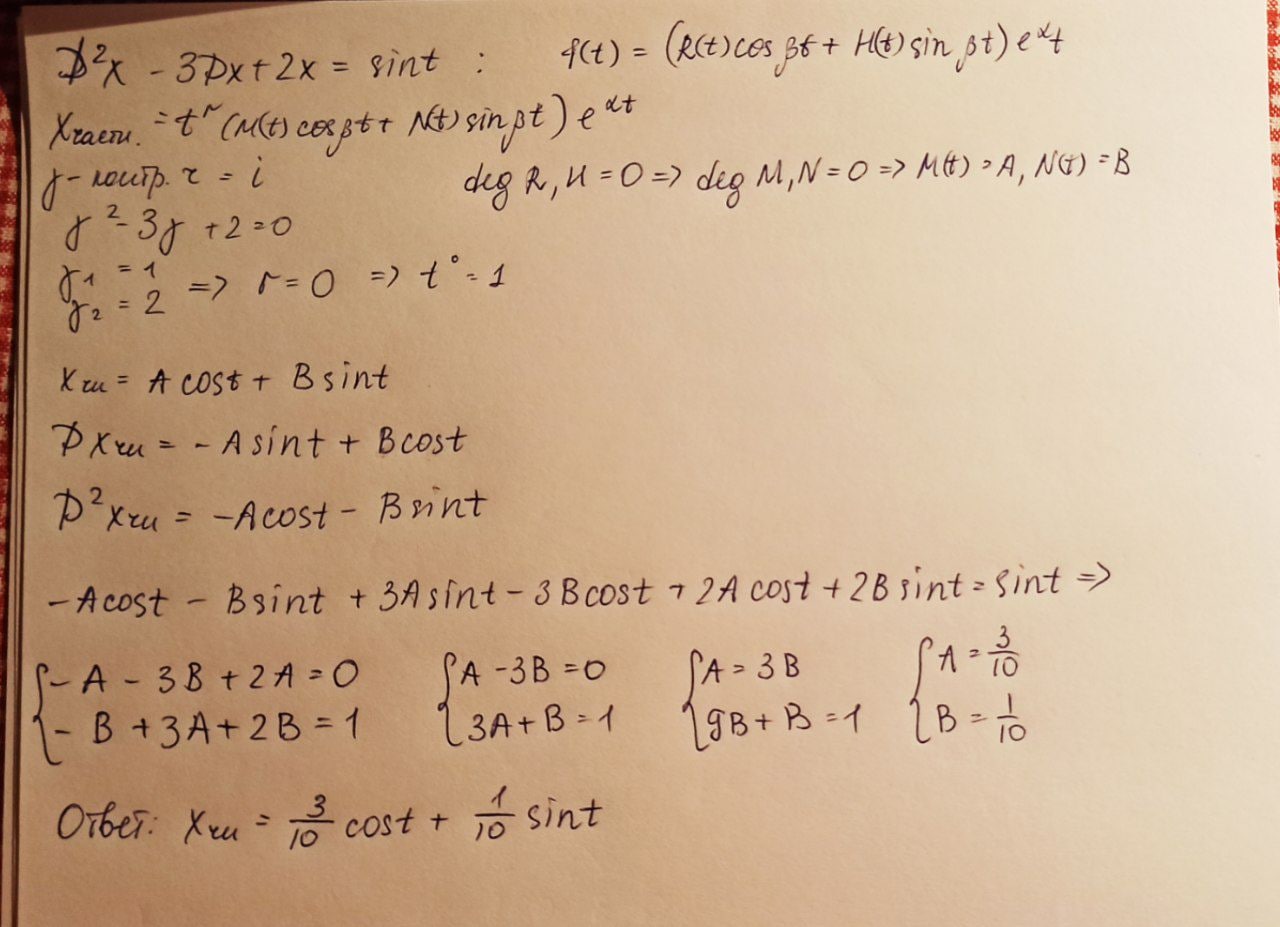 D²x - 3Dx + 2x = sint : f(t) = (R(t) cos βt + H(t) sin βt) e^αt
Xчастн. = t^r (M(t) cos βt + N(t) sin βt) e^αt
γ - контр. ч = i deg R, H = 0 => deg M, N = 0 => M(t) = A, N(t) = B
γ² - 3γ + 2 = 0
γ₁ = 1
γ₂ = 2 => r = 0 => t° = 1
Xчн = A cost + B sint
DXчн = - A sint + B cost
D²Xчн = -A cost - B sint
-A cost - B sint + 3A sint - 3B cost + 2A cost + 2B sint = sint =>
{ - A - 3B + 2A = 0 { A - 3B = 0 { A = 3B { A = 3/10
- B + 3A + 2B = 1 3A + B = 1 9B + B = 1 B = 1/10
Ответ: Xчн = 3/10 cost + 1/10 sint